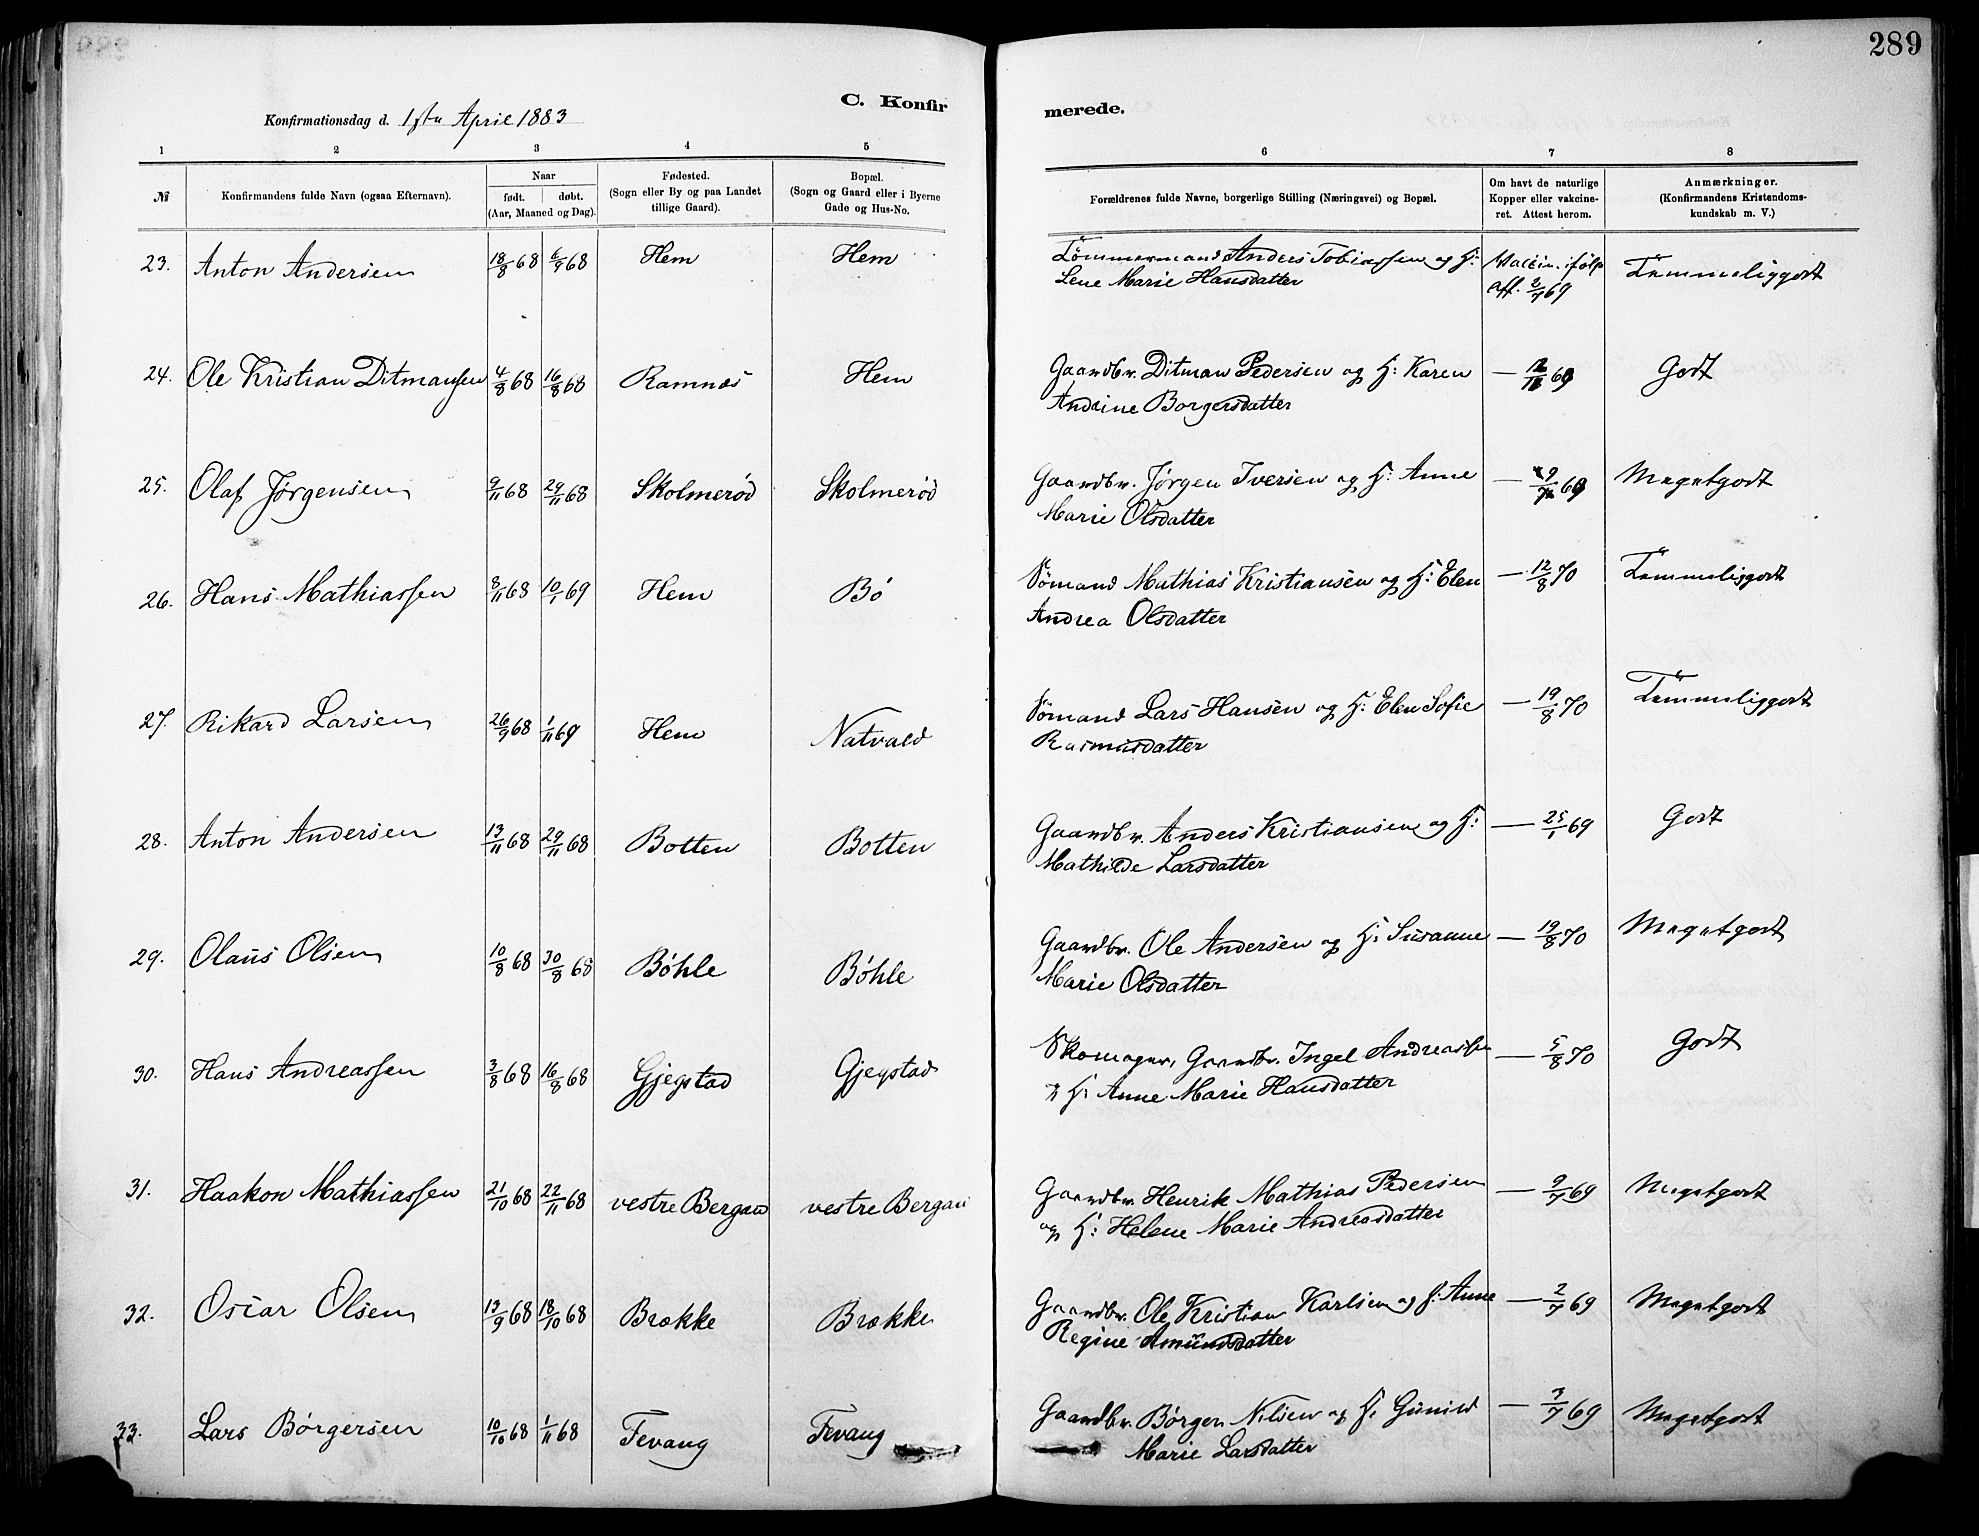 289
C. Konfirmerede.
Konfirmationsdag d. 1ste April 1883
1 2 3 4 5 6 7 8
№ Konfirmandens fulde Navn (ogsaa Efternavn). Naar født. døbt. (Aar, Maaned og Dag). Fødested. (Sogn eller By og paa Landet tillige Gaard). Bopæl. (Sogn og Gaard eller i Byerne Gade og Hus-No. Forældrenes fulde Navne, borgerlige Stilling (Næringsvei) og Bopæl. Om havt de naturlige Kopper eller vakcineret. Attest herom. Anmærkninger. (Konfirmandens Kristendomskundskab m. V.)
23. Anton Andersen 18/8 68 6/9 68 Hem Hem Tömmermand Anders Tobiassen og H: Vaccin. ifølg Temmeliggodt
Lene Marie Hansdatter att. 2/7 69
24. Ole Kristian Ditmansen 4/8 68 16/8 68 Ramnæs Hem Gaardbr. Ditman Pedersen og H: Karen — Godt
Andrine Borgersdatter
25. Olaf Jørgensen 9/11 68 29/11 68 Skolmerød Skolmerød Gaardbr. Jørgen Iversen og H: Anne — Megetgodt
Marie Olsdatter
26. Hans Mathiassen 8/11 68 10/1 69 Hem Bø Sömand Mathias Kristiansen og H: Elen — 12/8 70 Temmeliggodt
Andrea Olsdatter
27. Rikard Larsen 26/9 68 1/11 69 Hem Natvald Sömand Lars Hansen og H: Elen Sofie — 19/8 70 Temmeliggodt
Rasmusdatter
28. Anton Andersen 13/11 68 29/11 68 Botten Botten Gaardbr. Anders Kristiansen og H: — 25/1 69 Godt
Mathilde Larsdatter
29. Olaus Olsen 10/8 68 30/8 68 Bøhle Bøhle Gaardbr. Ole Andersen og H: Susanne — 19/8 70 Megetgodt
Marie Olsdatter
30. Hans Andreassen 3/8 68 16/8 68 Gjegstad Gjegstad Skomager, Gaardbr. Ingel Andreassen — 5/8 70 Godt
og H: Anne Marie Hansdatter
31. Haakon Mathiassen 21/10 68 22/11 68 vestre Bergan vestre Bergan Gaardbr. Henrik Mathias Pedersen — 9/7 69 Megetgodt
og H: Helene Marie Andreasdatter
32. Oscar Olsen 13/9 68 18/10 68 Brække Brække Gaardbr. Ole Kristian Karlsen og H: Anne — 2/7 69 Megetgodt
Regine Amundsdatter
33. Lars Børgersen 10/10 68 1/11 68 Fevang Fevang Gaardbr. Børger Nilsen og H: Gunild — 3/7 69 Megetgodt
Marie Larsdatter